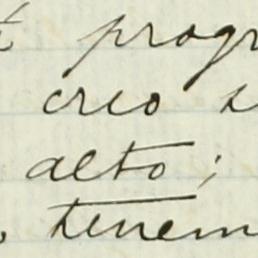 progr
creo
alto;
tenem